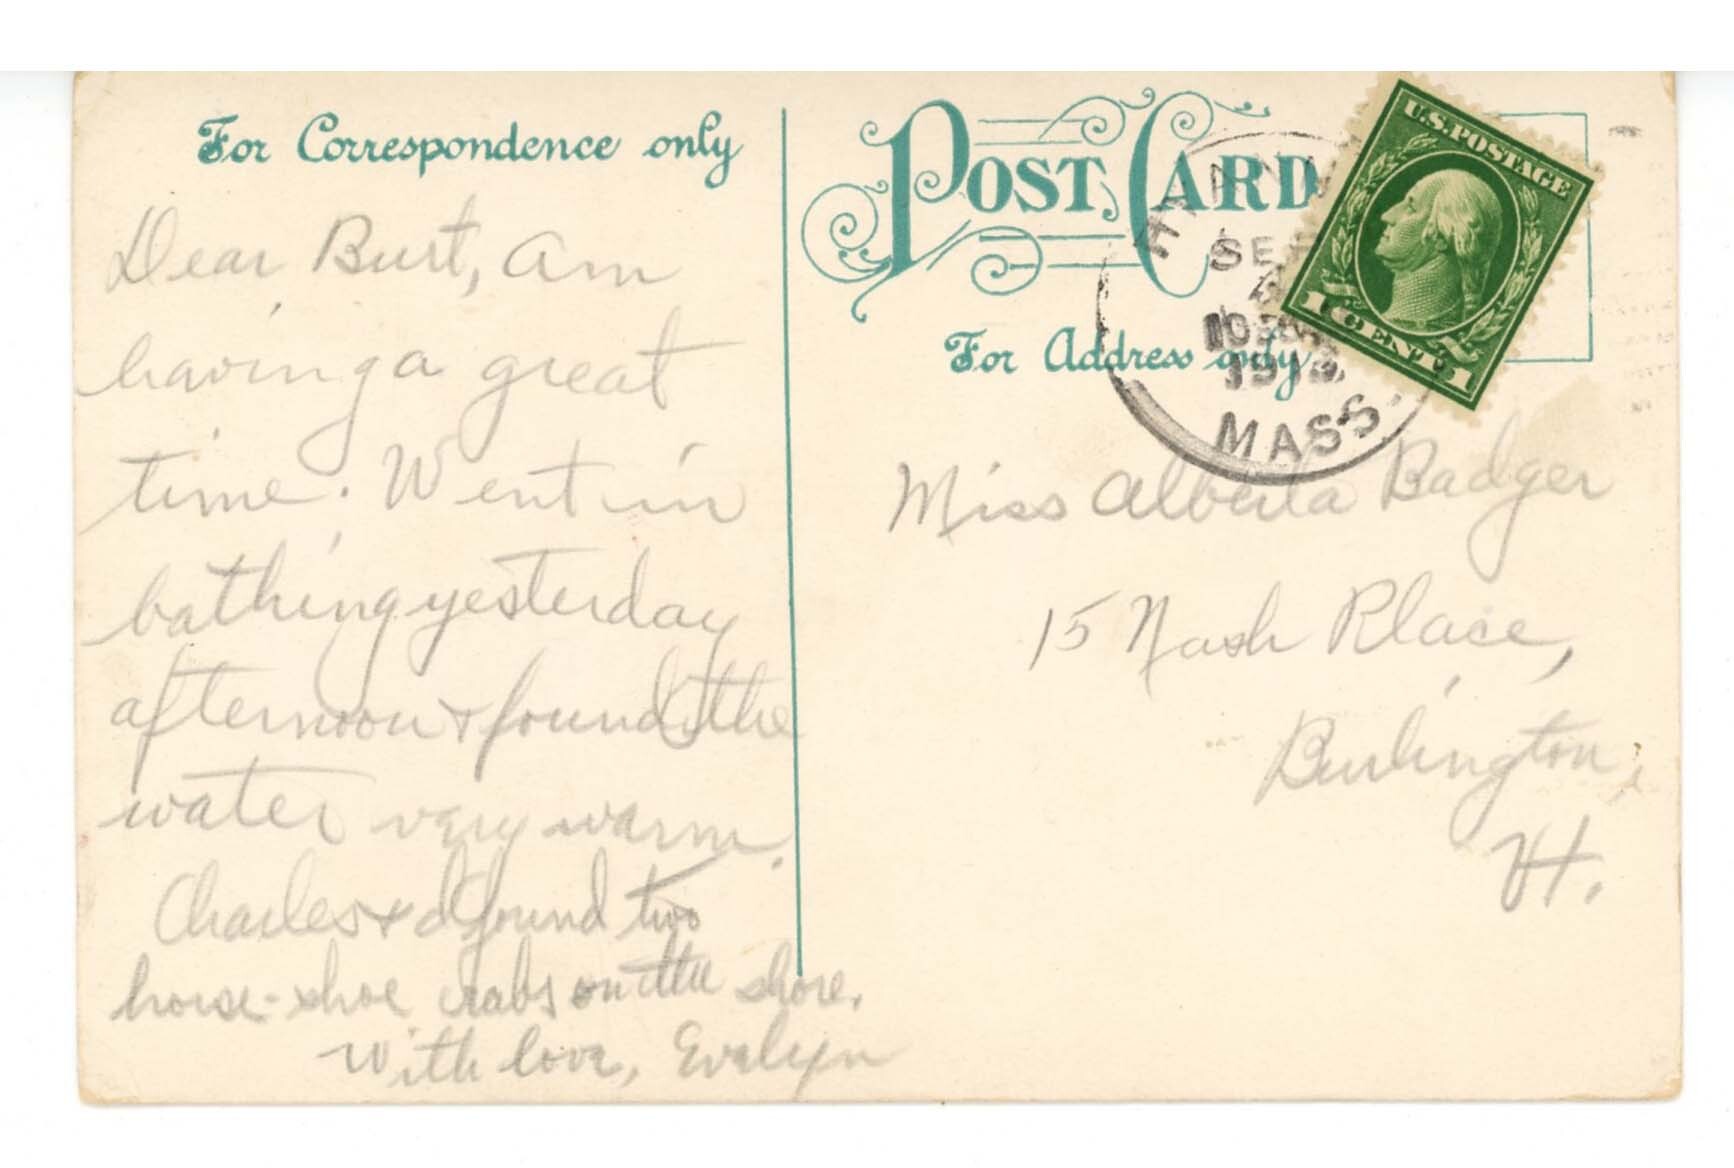 For Correspondence only
Dear Burt, am
having a great
time. Went in
bathing yesterday
afternoon & found the
water very warm.
Charles & I found two
horse-shoe crabs on the shore.
With love, Evelyn
POST CARD
For Address only
U.S. POSTAGE
1 CENT 1
HYANN
SE
MASS.
Miss Alberta Badger
15 Nash Place,
Burlington,
Vt.